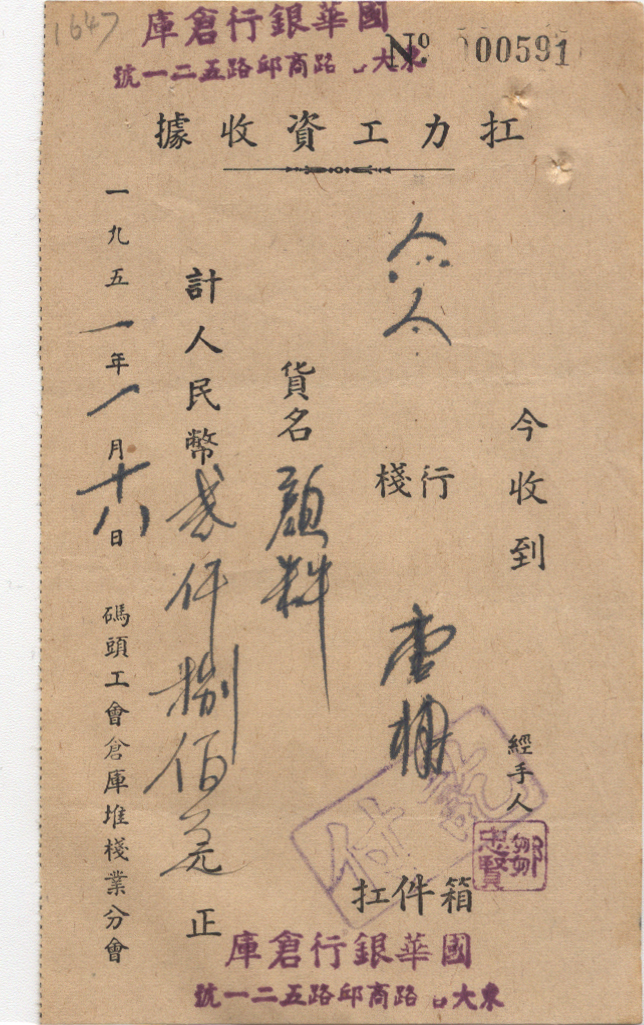 1647
國華銀行倉庫
東大 路商邱路五二一號
№ 00591
扛力工資收據
今收到
經手人
鄒忠賢
人人
行棧
箱件扛
貨名顏料
計人民幣貳仟捌佰元正
一九五一年一月十八日
碼頭工會倉庫堆棧業分會
付訖
國華銀行倉庫
東大 路商邱路五二一號